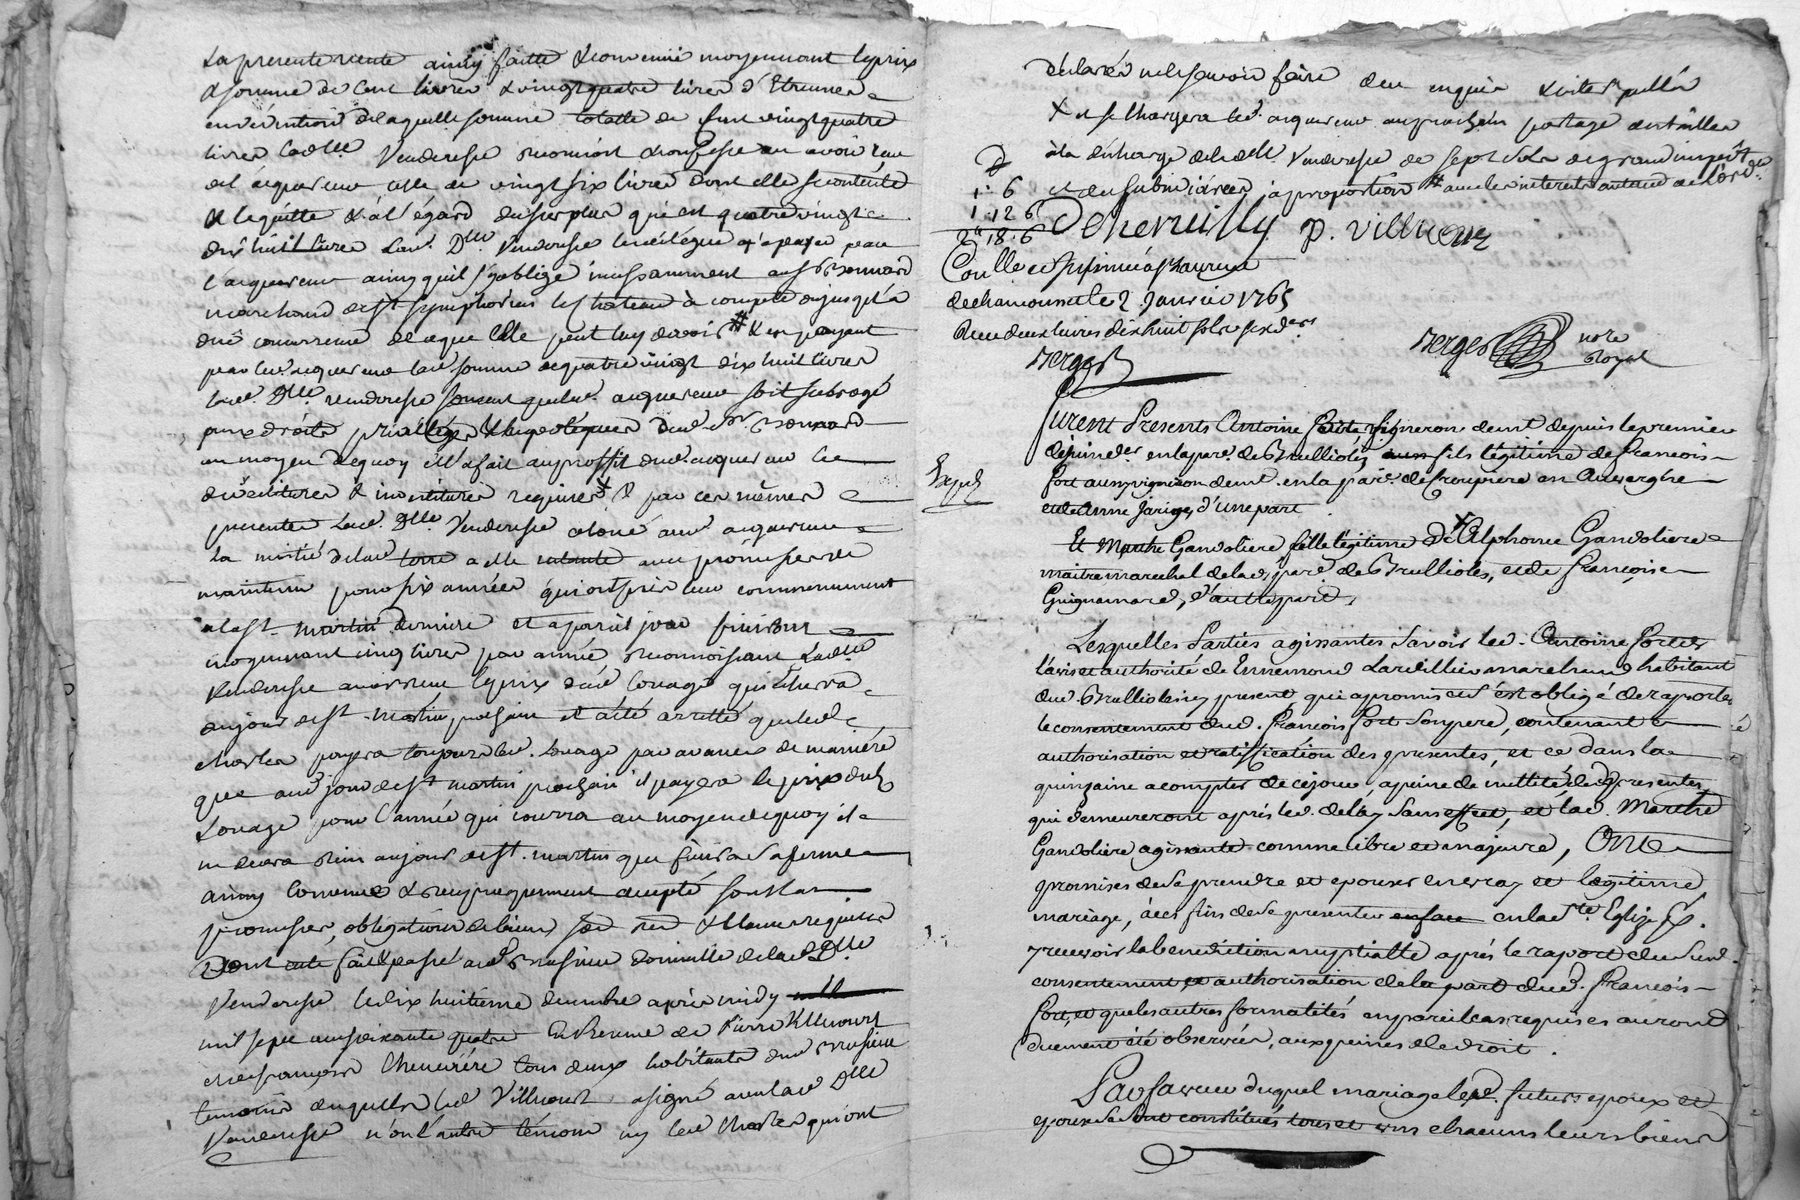 La presente vente ainsy faitte & convenue moyennant le prix
& somme de cent livres & vingt quatre livres d'Etrennes
en déduction de laquelle somme totalle de cent vingt quatre
livres lad. Dlle Venderesse reconnoit & confesse en avoir reçu
dud. acquereur celle de vingt six livres dont elle se contente
& le quitte & à l'égard du surplus qui est quatre vingt
dix huit livres lad. Dlle Venderesse à payer par
l'acquereur ainsy qu'il s'y oblige incessamment au Sr Bonnard
marchand de St Symphorien le Chateau à compte ou jusqu'à
due concurrence de ce que elle peut luy devoir # & en payant
par led. acquereur lad. somme de quatre vingt dix huit livres
lad. Dlle venderesse consent que led. acquereur soit subrogé
aux droits privilèges & hipotèques dud. Sr Bonnard
au moyen de quoy il a fait au proffit dud. acquereur les
devestitures & investitures requises X & par ces mêmes
presentes lad. Dlle Venderesse a loué aud. acquereur
la moitié de lad. terre a elle vendue avec promesse de
maintenir pour six années qui ont pris leur commencement
a la St. martin derniere et a pareil jour finiront
moyennant cinq livres par année reconnoissant lad. Dlle
Venderesse avoir reçu le prix dud. louage qui echerra
au jour de St. martin prochain et a été arretté que led.
charles payera toujours led. louage par avance de manière
que aud. jour de St martin prochain il payera le prix dud.
Louage pour l'année qui courra au moyen de quoy il
ne devra rien au jour de St. martin que finira sa ferme
ainsy convenu & reciproquement accepté sous les
promesses, obligations de biens & clauses requises
Dont acte fait & passé aud. Brusieu domicille de lad. Dlle
Venderesse le dix huitieme decembre après midy
mil sept cent soixante quatre En Presence de Pierre Villecourt
& François Cheneviére tous deux habitants dud Brusieu
temoins duquels led Villecourt a signé avec lad Dlle
Venderesse n'on l'autre témoin ny led Charles qui ont
declarés ne le savoir faire de ce enquis & interpellés
X et se chargera led. acquereur au prochain partage des tailles
à la décharge de lad. Dlle Venderesse de sept sols de grand impôt
et des subsidiaires à proportion # avec les interets
D
1 . 6
1 . 12 6
2# 18 . 6
Deheneuilly P. Villecour
Conllé et Insinué à St Laurent
de chamousset le 2 Janvier 1765
Reçu deux livres dix huit sols six ders
Berger
Berger notre
Royal
Furent Presents Antoine Fort vigneron demt depuis le premier
de juin der en la pare de Brullioles fils légitime de François
Fort aussy vigneron demt en la pare de en Auvergne
et de Anne Jarige, d'une part
Expédié
Et Marthe Gandoliere fille légitime d'X Alphonce Gandoliere
maitre marechal de lad. pare de Brullioles, et de Françoise
Guignamard, d'autre part,
Lesquelles Parties agissantes savoir led. Antoine Fort de
l'avis et authorité de Ennemond Lardillier marchand habitant
dud. Brullioles icy present qui a promis et s'est obligé de raporter
le consentement dud. François Fort son pere, contenant
authorisation et ratiffication des presentes, et ce dans la
quinzaine a compter de ce jour, a peine de nullité desd. presentes
qui demeureront après led. delay sans effet, et lad. Marthe
Gandoliere agissante comme libre et majeure, Ont
promises de se prendre et epouser en vray et legitime
mariage, à ces fins de se presenter en face en la Ste Eglize pr.
y recevoir la benediction nuptialle après le raport dud. Sud.
consentement et authorisation de la part dud. François
Fort, et que les autres formalités en pareil cas requises auront
duement été observées, aux peines de droit .
En faveur duquel mariage lesd. futurs epoux et
epouse se sont constitués tous et uns chacuns leurs biens